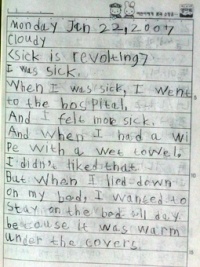 monday Jan 22, 2007
Cloudy
<Sick is revolting>
I was sick.
When I was sick, I went
to the hospital.
And I felt more sick.
And when I had a wi
pe with a wet towel.
I didn't liked that.
But when I lied down
on my bed, I wanted to
stay on the bed all day
because it was warm
under the covers.